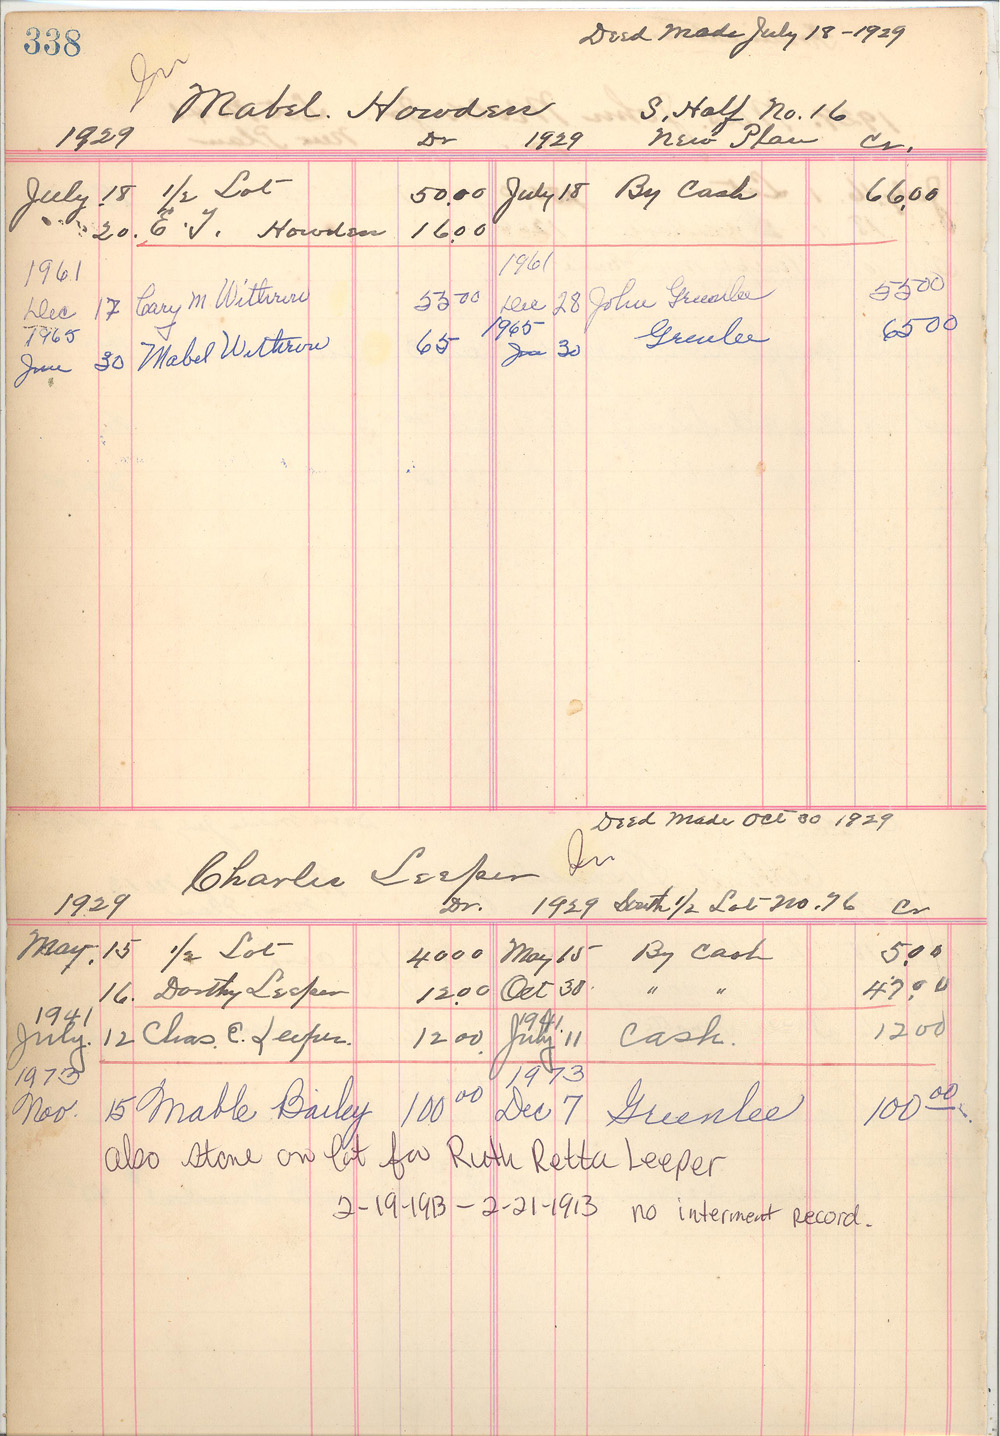 338
Deed Made July 18-1929
Mabel. Howden S. Half No. 16
1929 Dr 1929 New Plan Cr.
July 18 1/2 Lot 50.00 July 18 By Cash 66.00
20. E. T. Howden 16.00
1961 1961
Dec 17 Cary M Withrow 55 00 Dec 28 John Greenlee 55 00
1965 1965
June 30 Mabel Withrow 65 June 30 Greenlee 65 00
Deed Made Oct 30 1929
Charlie Leeper
1929 Dr. 1929 South 1/2 Lot No. 76 Cr
May. 15 1/2 Lot 40 00 May 15 By Cash 5.00
16. Dorthy Leeper 12.00 Oct 30 " " 47.00
1941 1941
July. 12 Chas. C. Leeper. 12 00. July 11 Cash. 12 00
1973 1973
Nov. 15 Mable Bailey 100 00 Dec 7 Greenlee 100 00
also stone on lot for Ruth Retta Leeper
2-19-1913 - 2-21-1913 no interment record.